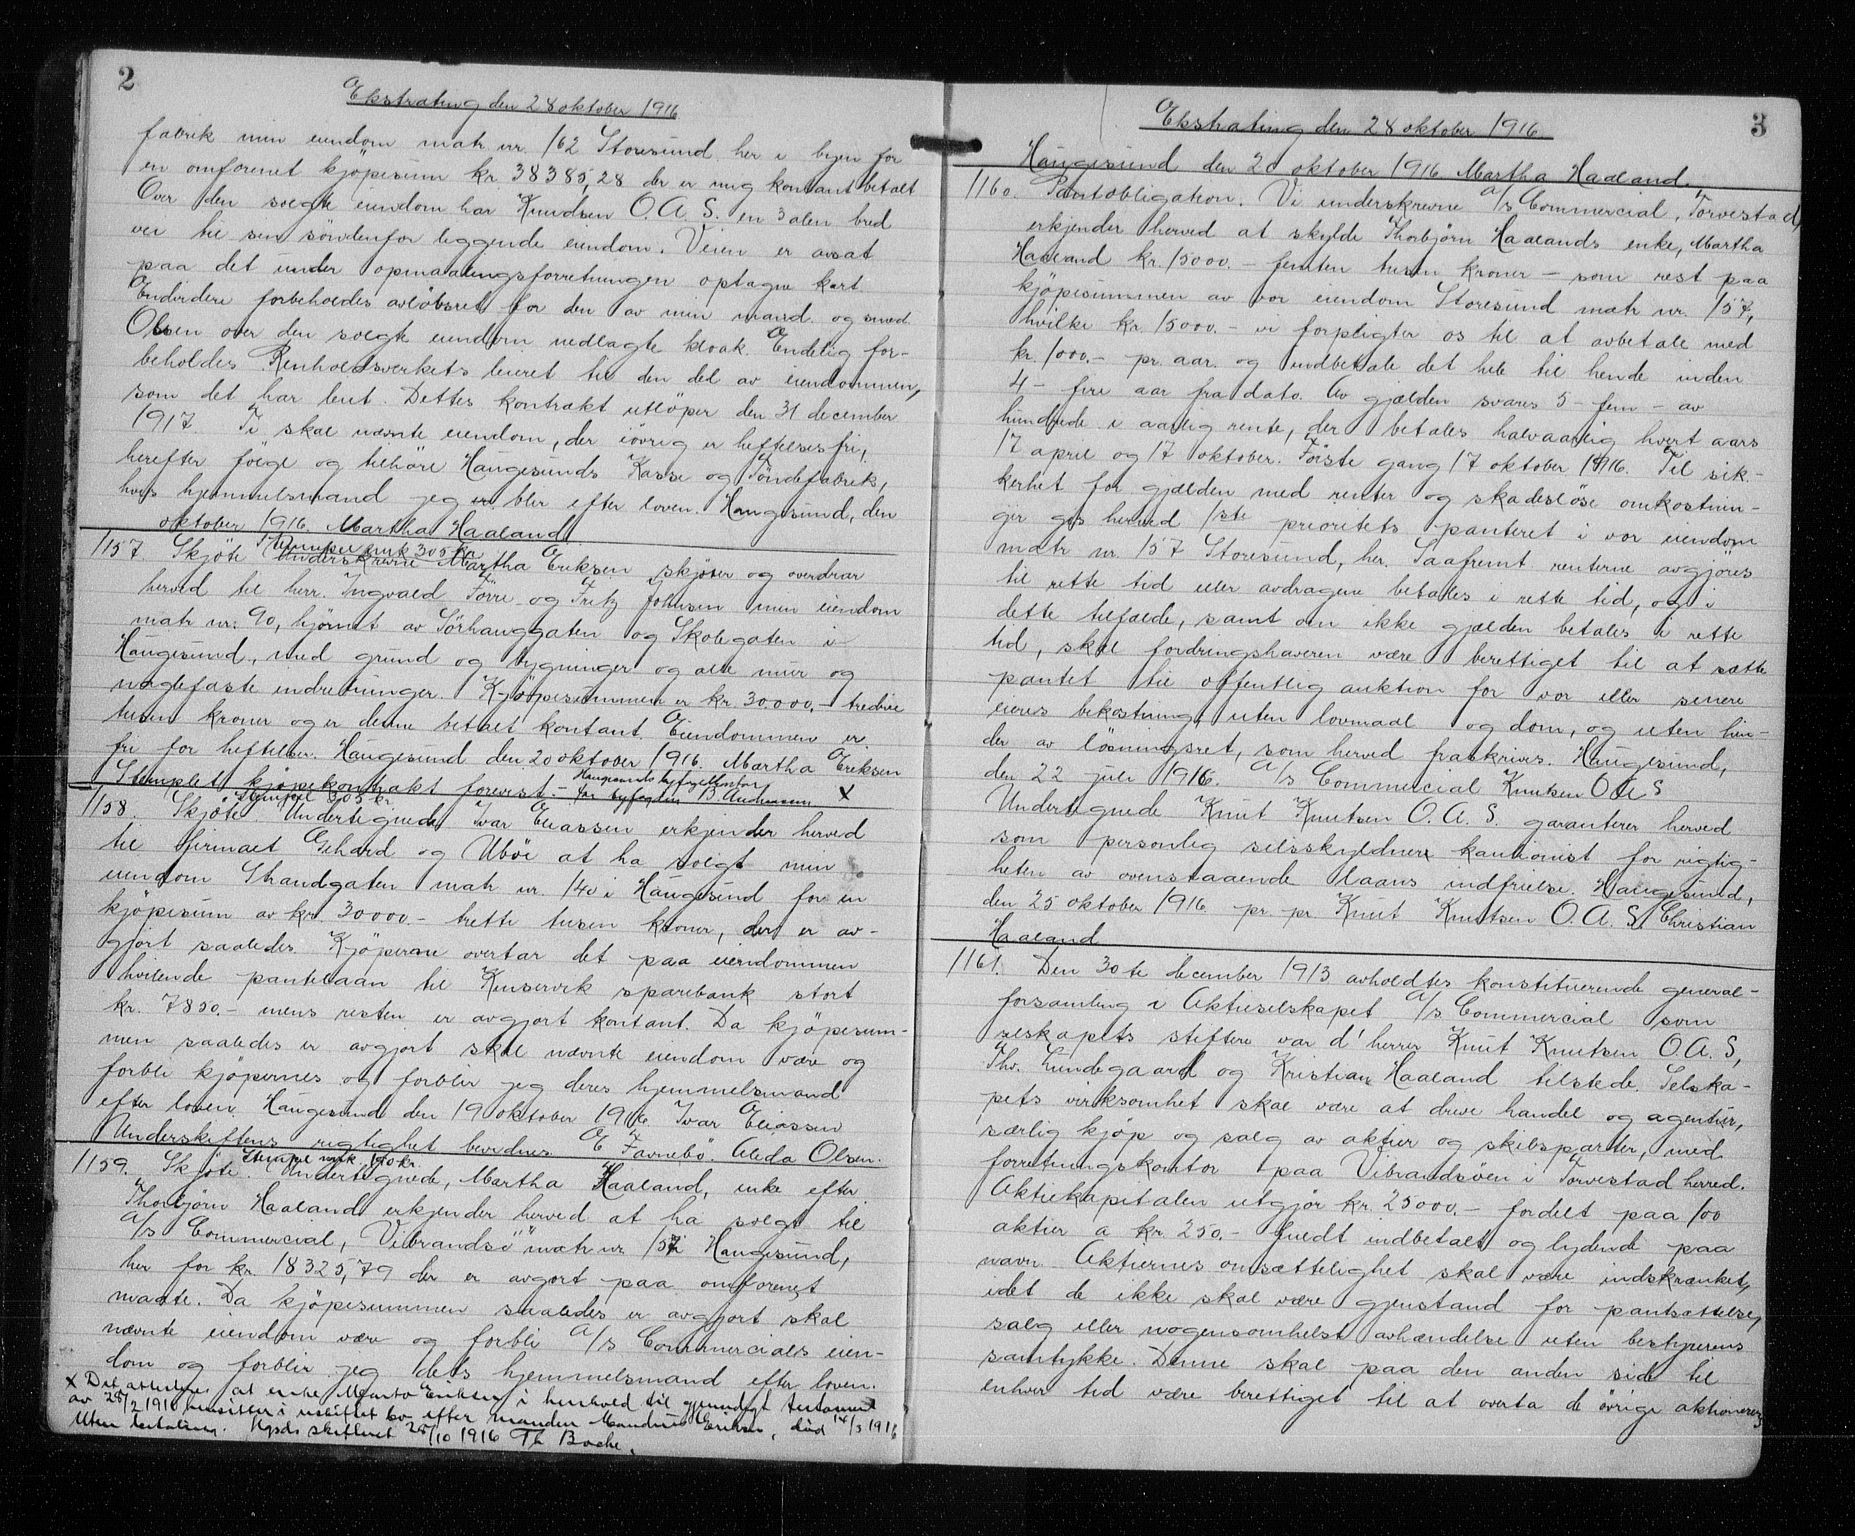 2
Ekstrating den 28 oktober 1916
fabrik min eiendom matr nr. 162 Storesund her i byen for
en omforenet kjöpesum kr. 38385,28 der er mig kontant betalt
Over den solgte eiendom har Knudsen O.A.S. en 3 alen bred
vei til sin söndenfor liggende eiendom. Veien er avsat
paa det under opmaalingsforretningen optagne kart.
Endvidere forbeholdes avlöbsret for den av min mand og smed
Olsen over den solgte eiendom nedlagte kloak. Endelig for-
beholdes Renholdsverkets leieret til den del av eiendommen,
som det har leiet. Dettes kontrakt utlöper den 31 december
1917. Ti skal nævnte eiendom, der iövrig er heftelsesfri,
herefter fölge og tilhöre Haugesunds Kasse og Töndefabrik,
hvis hjemmelsmand jeg er blir efter loven. Haugesund, den
oktober 1916. Martha Haaland
1157. Skjöte Stempel mrk 305 kr. Underskrevne Martha Eriksen skjöter og overdrar
herved til herr. Ingvald Förre og Fritz Johnsen min eiendom
matr nr. 90, hjörnet av Sörhauggaten og Skolegaten i
Haugesund, med grund og bygninger og alle mur og
naglefaste indretninger. Kjöpesummen er kr. 30000,- tredive
tusen kroner og er denne betalt kontant. Eiendommen er
fri for heftelser. Haugesund den 20 oktober 1916. Martha Eriksen
Stemplet kjöpekontrakt forevist. - Haugesunds byfogdkontor for byfogden B. Andreassen X
1158. Skjöte. Stempel 305 kr. Undertegnede Ivar Eliassen erkjender herved
til firmaet Gehard og Uböe at ha solgt min
eiendom Strandgaten matr nr. 140 i Haugesund for en
kjöpesum av kr. 30000.- tretti tusen kroner, der er av-
gjort saaledes. Kjöperne overtar det paa eiendommen
hvilende pantelaan til Kinservik sparebank stort
kr. 7850.- mens resten er avgjort kontant. Da kjöpesum-
men saaledes er avgjort skal nævnte eiendom være og
forbli kjöpernes og forblir jeg deres hjemmelsmand
efter loven. Haugesund den 19 oktober 1916 Ivar Eliassen
Underskriftens rigtighet bevidnes E Favnebö. Alida Olsen.
1159. Skjöte. Stempel mrk. 190 kr. Undertegnede, Martha Haaland, enke efter
Thorbjörn Haaland erkjender herved at ha solgt til
A/s Commercial, Vibrandsö matr nr 157 i Haugesund,
her for kr. 18325,79 der er avgjort paa omforenet
maate. Da kjöpesummen saaledes er avgjort skal
nævnte eiendom være og forbli A/s Commercials eien-
dom og forblir jeg dets hjemmelsmand efter loven.
X Det attesteres at enke Marta Eriksen i henhold til gjensidigt testament
av 25/2 1910 hensitter i uskiftet bo efter manden Mandrus Eriksen, död 14/3 1916
Uten betaling. Hgsds skifteret 25/10 1916 Th Boche.
3
Ekstrating den 28 oktober 1916.
Haugesund den 20 oktober 1916 Martha Haaland.
1160. Pantobligation. Vi underskrevne A/s Commercial, Torvestad,
erkjender herved at skylde Thorbjörn Haalands enke, Martha
Haaland kr. 15000.- femten tusen kroner - som rest paa
kjöpesummen av vor eiendom Storesund matr nr. 157,
hvilke kr. 15000.- vi forpligter os til at avbetale med
kr. 1000.- pr. aar. og indbetale det hele til hende inden
4 - fire aar fra dato. Av gjælden svares 5 - fem - av
hundrede i aarlig rente, der betales halvaarlig hvert aars
17 april og 17 oktober. Förste gang 17 oktober 1916. Til sik-
kerhet for gjælden med renter og skadeslöse omkostnin-
ger gis herved 1ste prioritets panteret i vor eiendom
matr nr. 157 Storesund, her. Saafremt renterne avgjöres
til rette tid eller avdragene betales i rette tid, og i
dette tilfælde, samt om ikke gjælden betales i rette
tid, skal fordringshaveren være berettiget til at sætte
pantet til offentlig auktion for vor eller senere
eieres bekostning, uten lovmaal og dom, og uten hin-
der av lösningsret, som herved fraskrives. Haugesund,
den 22 juli 1916. A/s Commercial Knutsen OAS
Undertegnede Knut Knutsen O.A.S. garanterer herved
som personlig selvskyldner kautionist for rigtig-
heten av ovenstaaende laans indfrielse. Haugesund,
den 25 oktober 1916 pr. pr. Knut Knutsen O.A.S. Christian
Haaland
1161. Den 30te december 1913 avholdtes konstituerende general-
forsamling i Aktieselskapet A/s Commercial som
selskapets stiftere var d'herrer Knut Knutsen O.A.S,
Thv. Lundegaard og Kristian Haaland tilstede. Selska-
pets virksomhet skal være at drive handel og agentur,
særlig kjöp og salg av aktier og skibsparter, med
forretningskontor paa Vibrandsöen i Torvestad herred.
Aktiekapitalen utgjör kr. 25000.- fordelt paa 100
aktier a kr. 250.- fuldt indbetalt og lydende paa
navn. Aktiernes omsættelighet skal være indskrænket,
idet de ikke skal være gjenstand for pantsættelse,
salg eller nogensomhelst avhændelse uten bestyrerens
samtykke. Denne skal paa den anden side til
enhver tid være berettiget til at overta de övrige aktionerers